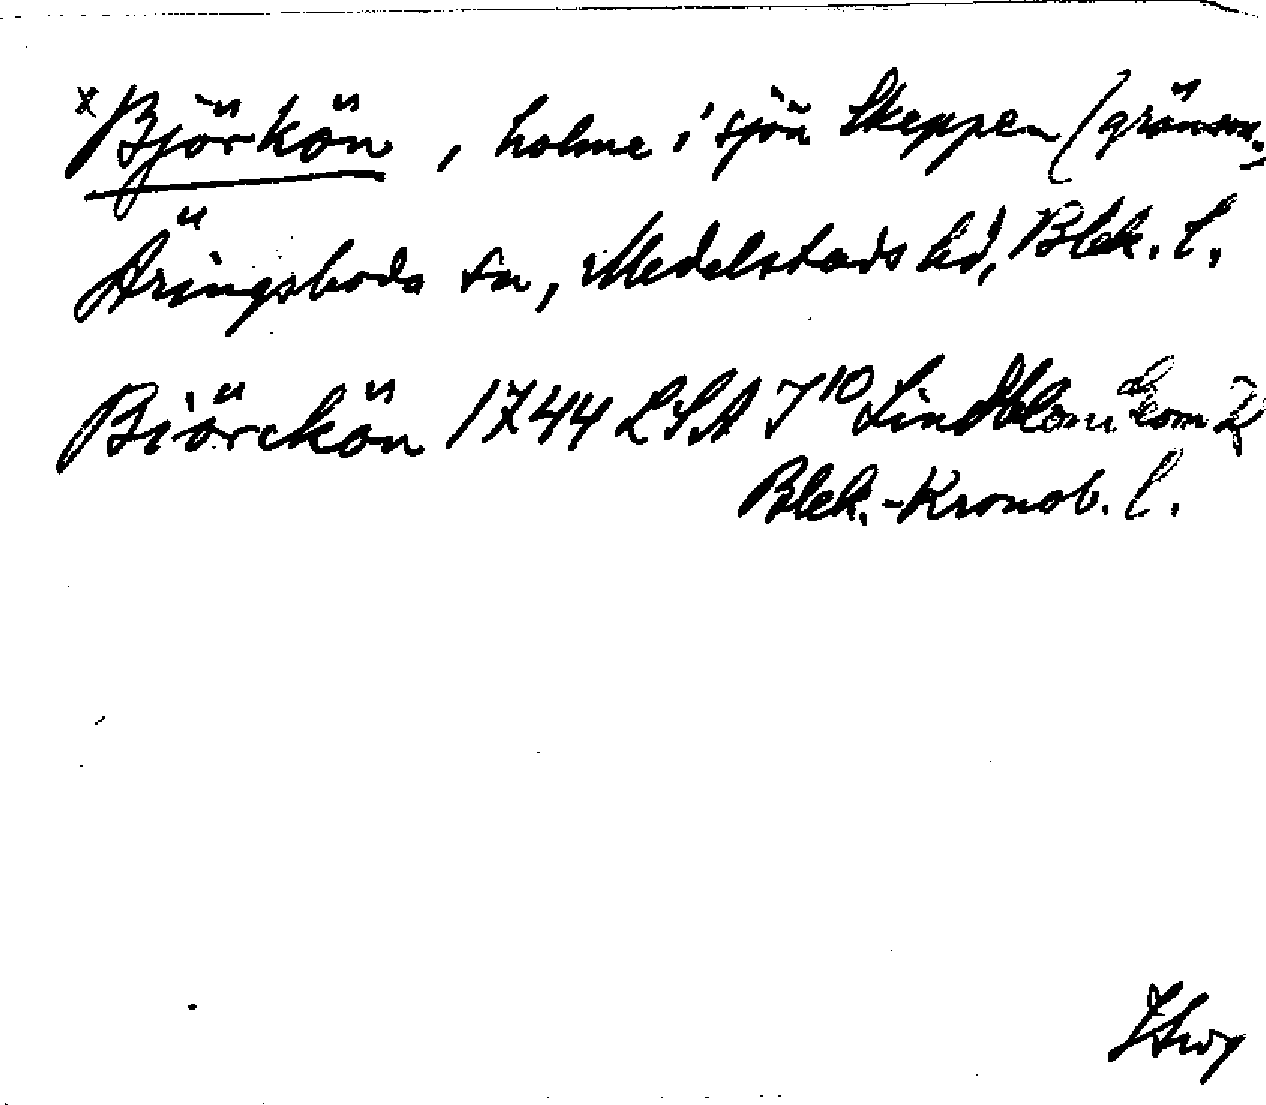 x Björkön, holme i sjön Skeppen (gränsen-
Äringsboda sn, Medelstads hd, Blek. l.
Biörckön 1744 LSA I10 Lindblom
Blek.-Kronob. l.